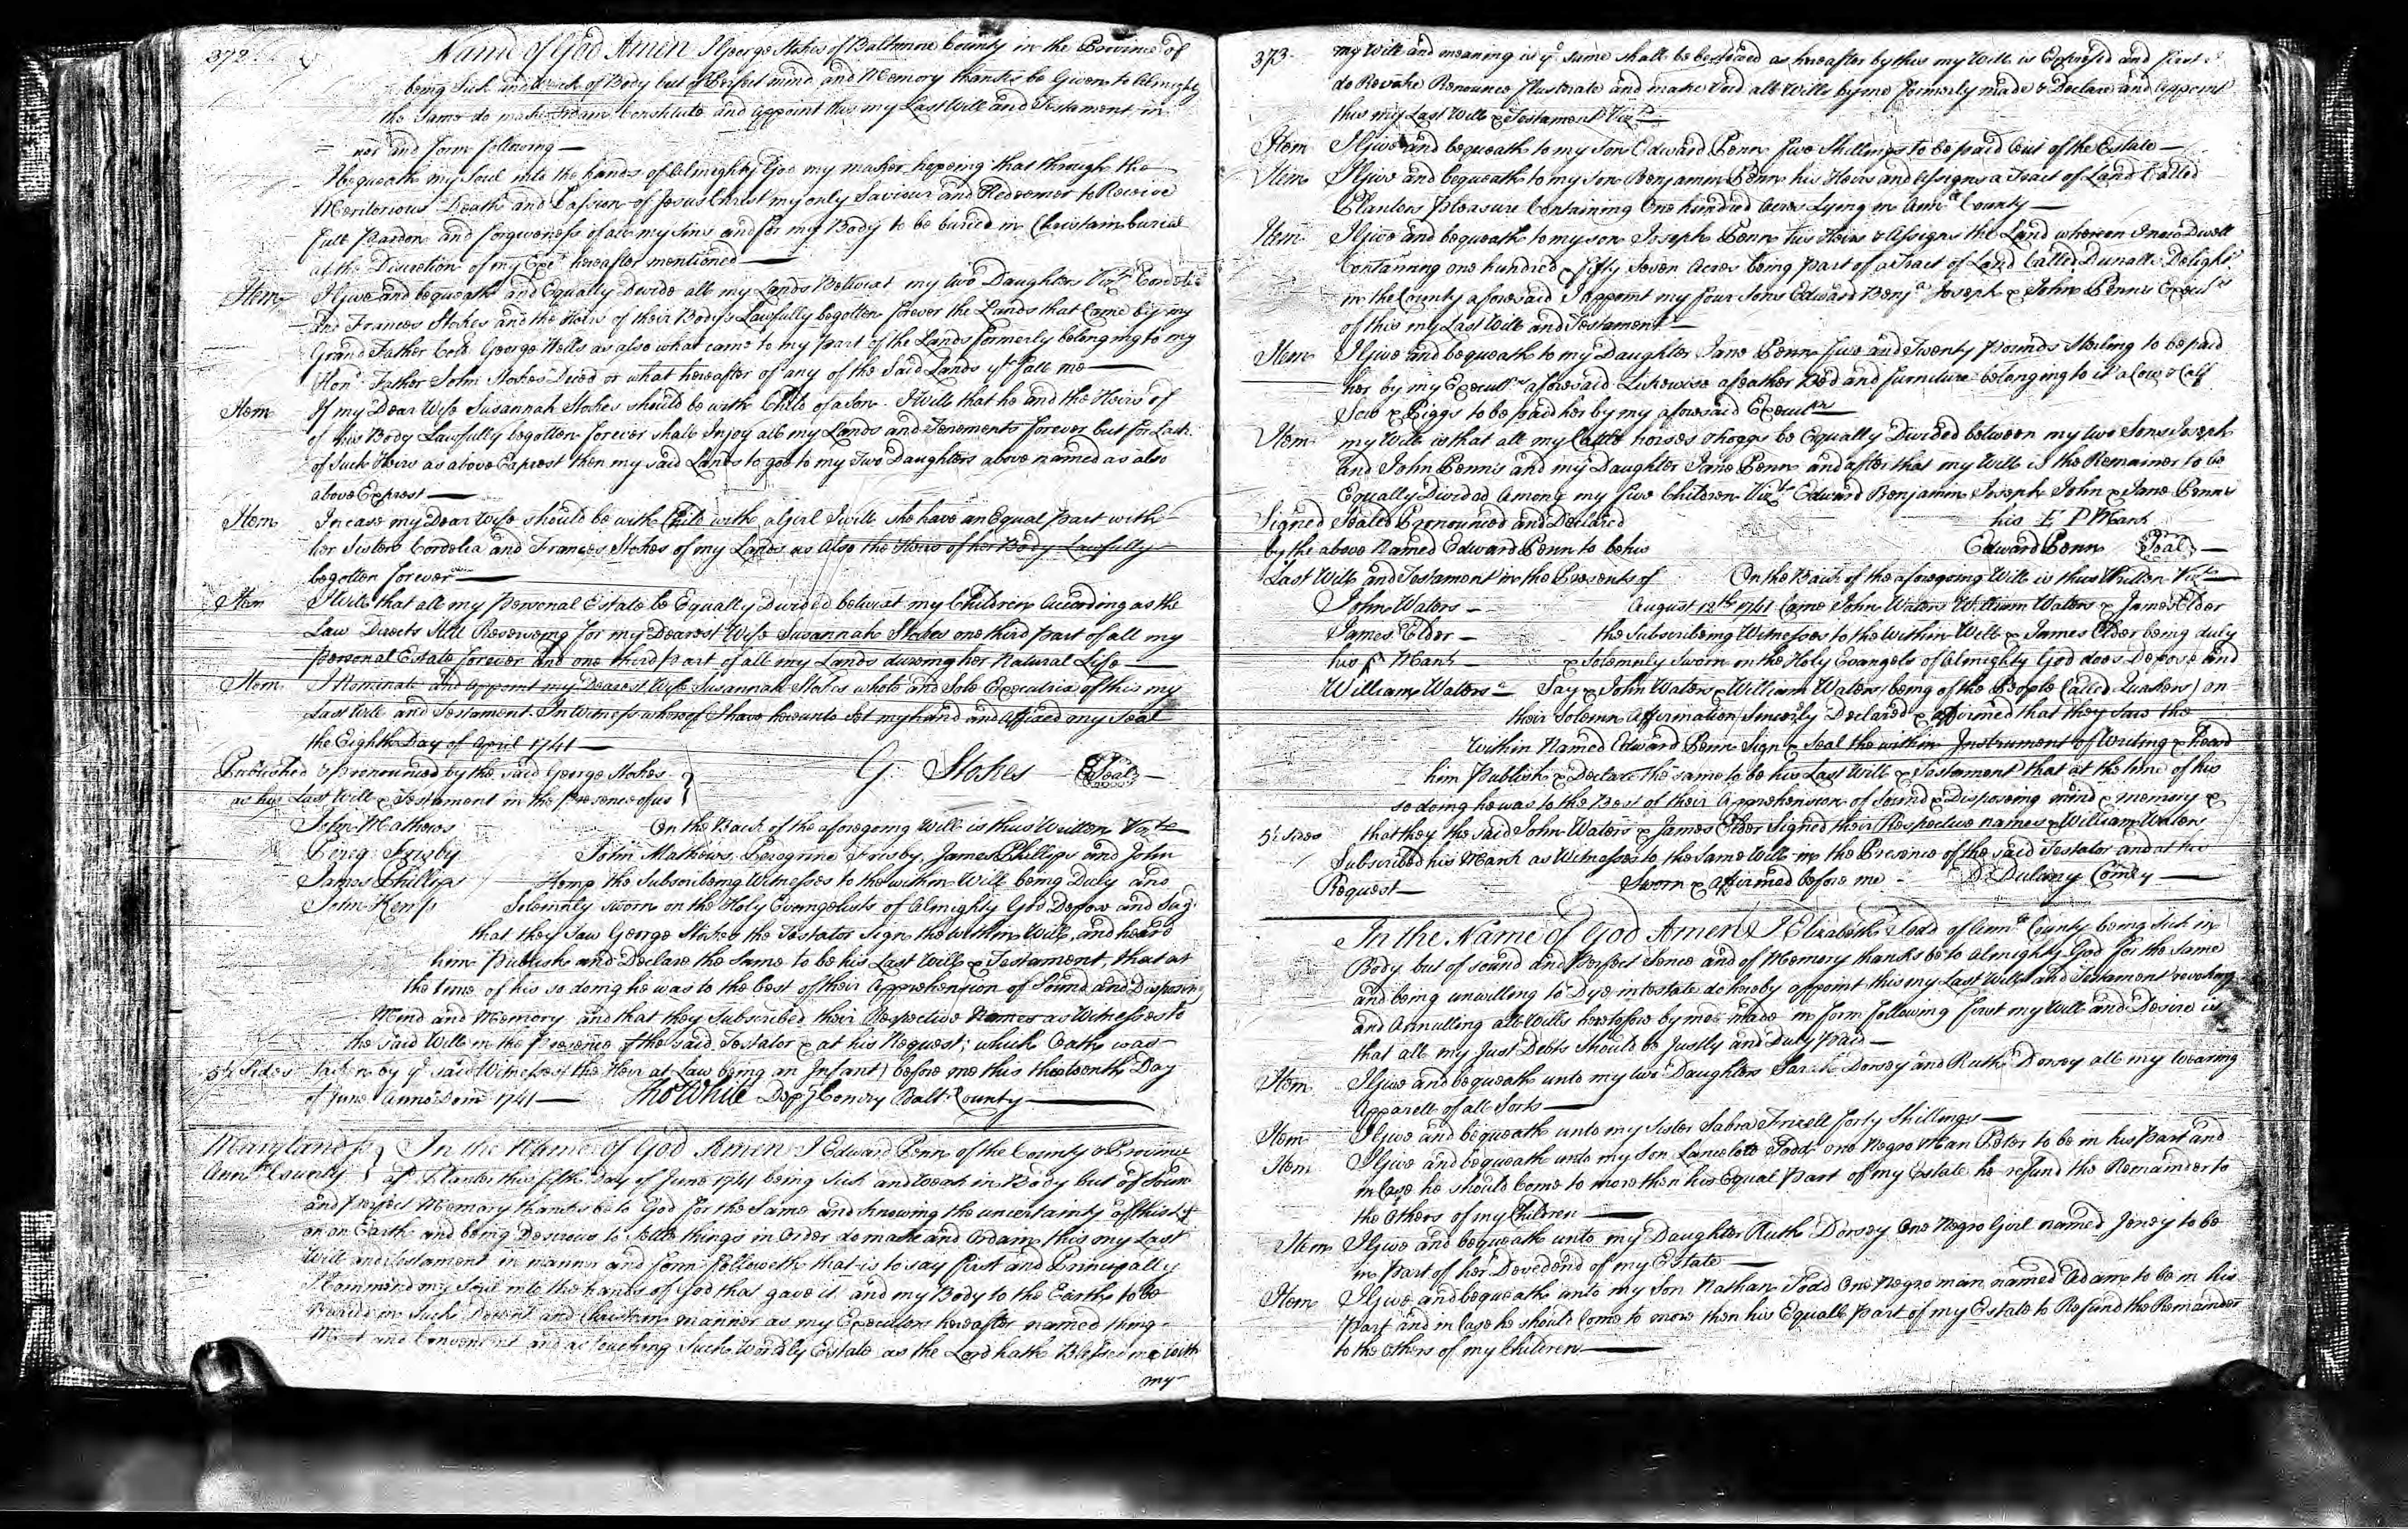 372
Name of God Amen I George Stokes of Baltimore County in the Province of
being Sick and Weak of Body but of Perfect mind and Memory thanks be Given to Almighty
the Same do make Ordain Constitute and appoint this my Last Will and Testament in
ner and form following —
I bequeath my Soul into the hands of Almighty God my maker hopeing that through the
Meritorious Death and Passion of Jesus Christ my only Saviour and Redeemer to Receive
full Pardon and forgiveness of all my Sins and for my Body to be buried in Christain burial
at the Discretion of my Exe.r hereafter mentioned —
Item I Give and bequeath and Equally Devide all my Lands Betwixt my two Daughters Viz.t Cordelia
and Frances Stokes and the Heirs of their Body's Lawfully begotten forever the Lands that Came by my
Grand Father Coll. George Wells as also what came to my part of the Lands formerly belonging to my
Hon.d Father John Stokes Deced or what hereafter of any of the Said Lands y.t fall me —
Item If my Dear Wife Susannah Stokes should be with Child of a Son I Will that he and the Heirs of
of his Body Lawfully begotten forever shall Injoy all my Lands and Tenements forever but for Lack
of Such Heirs as above Exprest then my said Lands to goe to my Two Daughters above named as also
above Exprest —
Item In case my Dear Wife should be with Child with a Girl I will she have an Equal part with
her Sisters Cordelia and Frances Stokes of my Lands as Also the Heirs of her Body Lawfully
begotten forever —
Item I Will that all my Personal Estate be Equally Divided betwixt my Children According as the
Law Directs Still Reserveing for my Dearest Wife Susannah Stokes one third part of all my
Personal Estate forever and one third part of all my Lands dureing her Natural Life —
Item I Nominate and Appoint my Dearest Wife Susannah Stokes whole and Sole Executrix of this my
Last Will and Testament. In Witness whereof I have hereunto Set my hand and Affixed my Seal
the Eighth Day of April 1741 —
Published & Pronounced by the said George Stokes } G. Stokes Seal —
as his Last Will & Testament in the presence of us
John Mathews On the Back of the aforegoing Will is thus Written Viz.t
Pereg: Frisby John Mathews, Peregrine Frisby, James Phillips and John
James Phillips Kemp the Subscribeing Witnesses to the within Will being Duly and
John Kemp Solemnly sworn on the Holy Evangelists of Almighty God Depose and Say
that they Saw George Stokes the Testator Sign the within Will, and heard
him Publish and Declare the Same to be his Last Will & Testament, that at
the time of his so doing he was to the best of their Apprehension of Sound and Disposing
Mind and Memory and that they Subscribed their Respective Names as Witnesses to
the said Will in the Presence of the said Testator & at his Request; which Oath was
5½ Sides Taken by y.e said Witnesses (the Heir at Law being an Infant) before me this thirteenth Day
of June Anno Dom 1741 — Tho White Dep.y Comry Balt.e County —
Maryland ss } In the Name of God Amen I Edward Penn of the County & Province
Ann.dl County } af.d Planter this fifth Day of June 1741 being Sick and Weak in Body but of Sound
and perfect Memory thanks be to God for the Same and knowing the uncertainty of this Life
on Earth and being Desirous to Settle things in Order do make and Ordain this my Last
Will and Testament in manner and form followeth that is to say first and Principally
I Commend my Soul into the hands of God that gave it and my Body to the Earth to be
in Such Decent and Christian manner as my Executors hereafter named think
Meet and Convenient and as touching Such Wordly Estate as the Lord hath Blessed me with
my
373
my Will and meaning is y.e same shall be bestowed as hereafter by this my Will is Expressed and first I
do Revoke Renounce frustrate and make Void all Wills by me formerly made & Declare and Appoint
this my Last Will & Testament Viz.t —
Item I Give and bequeath to my Son Edward Penn five Shillings to be paid out of the Estate —
Item I Give and bequeath to my Son Benjamin Penn his Heirs and Assigns a Tract of Land Called
Planters Pleasure Containing One hundred Acres Lying in Ann.dl County —
Item I Give and bequeath to my son Joseph Penn his Heirs & Assigns the Land whereon I now Dwell
Containing one hundred & fifty Seven Acres being part of a Tract of Land Called Duvalls Delight
in the County aforesaid I appoint my four Sons Edward Benj.a Joseph & John Penns Execut.rs
of this my Last Will and Testament —
Item I Give and bequeath to my Daughter Jane Penn five and Twenty Pounds Sterling to be paid
her by my Execut.rs aforesaid Likewise a feather Bed and furniture belonging to it a Cow & Calf
Sow & Piggs to be paid her by my aforesaid Execut.rs —
Item my Will is that all my Cattle horses & hoggs be Equally Divided between my two Sons Joseph
and John Penns and my Daughter Jane Penn and after that my Will is the Remainer to be
Equally Divided Among my five Children Viz.t Edward Benjamin Joseph John & Jane Penns
Signed Sealed Pronounced and Declared his E P Mark
by the above Named Edward Penn to be his Edward Penn Seal —
Last Will and Testament in the Presents of On the Back of the aforegoing Will is thus Written Viz.t
John Waters — August 12.th 1741 Came John Waters William Waters & James Elder
James Elder — the Subscribeing Witnesses to the within Will & James Elder being duly
his Mark — & Solemnly Sworn on the Holy Evangels of Almighty God does Depose and
William Waters — Say & John Waters & William Waters (being of the People Called Quakers) on
their Solemn Affirmation Sincerly Declared & affirmed that they Saw the
within Named Edward Penn Sign & Seal the within Instrument of Writing & heard
him Publish & Declare the same to be his Last Will & Testament that at the time of his
so doing he was to the Best of their Apprehension of Sound & Disposeing mind & memory &
5½ Sides that they the said John Waters & James Elder Signed their Respective names & William Waters
Subscribed his Mark as Witnesses to the same Will in the Presence of the said Testator and at his
Request — Sworn & Affirmed before me — D: Dulany Comry —
In the Name of God Amen I Elizabeth Todd of Ann.dl County being Sick in
Body but of sound and Perfect Sence and of Memory thanks be to Almighty God for the same
and being unwilling to Dye intestate do hereby appoint this my Last Will and Testament revoking
and Annulling all Wills heretofore by me made in form following first my Will and Desire is
that all my Just Debts should be Justly and Duly Paid —
Item I Give and bequeath unto my two Daughters Sarah Dorsey and Ruth Dorsey all my wearing
Apparell of all Sorts —
Item I Give and bequeath unto my Sister Sabra Frizell forty Shillings —
Item I Give and bequeath unto my Son Lancelott Todd one Negro Man Peter to be in his Part and
in Case he should Come to more then his Equal Part of my Estate he refund the Remainder to
the Others of my Children —
Item I Give and bequeath unto my Daughter Ruth Dorsey One Negro Girl named Jeney to be
in Part of her Devedend of my Estate —
Item I Give and bequeath unto my Son Nathan Todd One Negro man named Adam to be in his
Part and in Case he should Come to more then his Equall Part of my Estate to Refund the Remainder
to the Others of my Children —